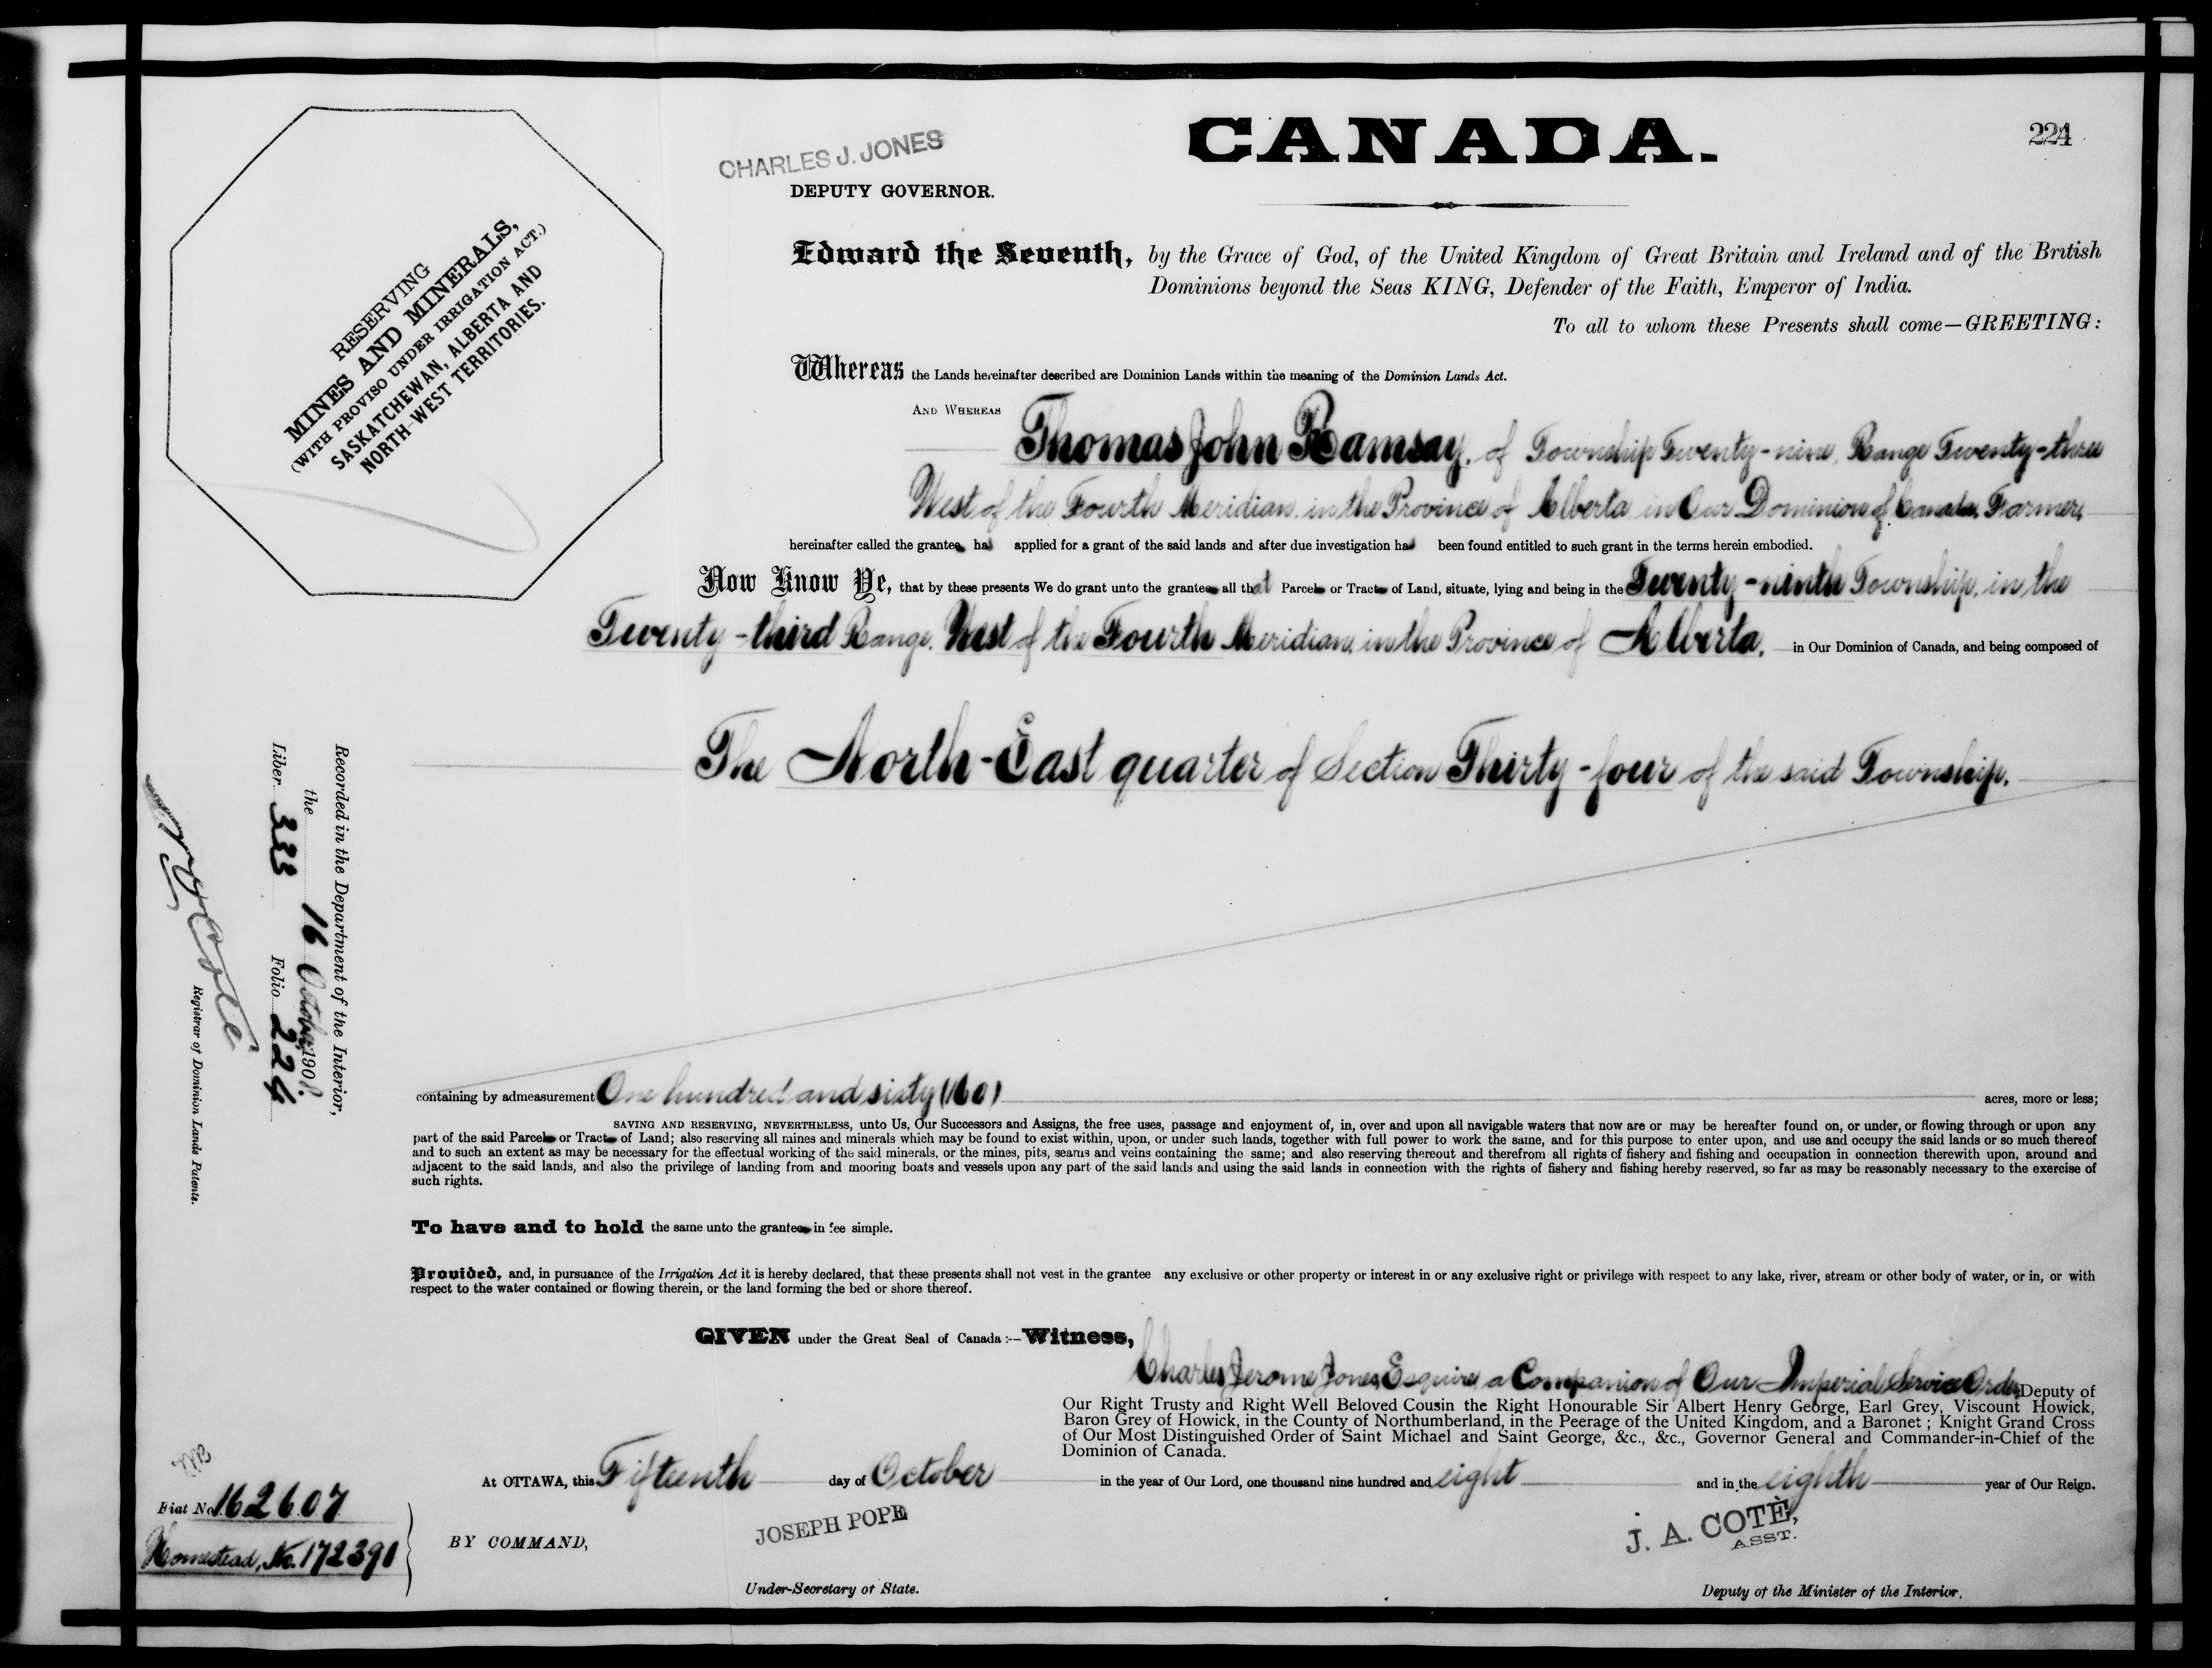 CANADA.
224
CHARLES J. JONES
DEPUTY GOVERNOR.
RESERVING
MINES AND MINERALS,
(WITH PROVISO UNDER IRRIGATION ACT.)
SASKATCHEWAN, ALBERTA AND
NORTH-WEST TERRITORIES.
Edward the Seventh, by the Grace of God, of the United Kingdom of Great Britain and Ireland and of the British
Dominions beyond the Seas KING, Defender of the Faith, Emperor of India.
To all to whom these Presents shall come—GREETING:
Whereas the Lands hereinafter described are Dominion Lands within the meaning of the Dominion Lands Act.
AND WHEREAS
Thomas John Ramsay, of Township Twenty-nine, Range Twenty-three
West of the Fourth Meridian, in the Province of Alberta in Our Dominion of Canada, Farmer,
hereinafter called the grantee has applied for a grant of the said lands and after due investigation has been found entitled to such grant in the terms herein embodied.
Now Know Ye, that by these presents We do grant unto the grantee all that Parcel or Tract of Land, situate, lying and being in the Twenty-ninth Township, in the
Twenty-third Range, West of the Fourth Meridian, in the Province of Alberta, in Our Dominion of Canada, and being composed of
The North-East quarter of Section Thirty-four of the said Township.
containing by admeasurement One hundred and sixty (160) acres, more or less;
SAVING AND RESERVING, NEVERTHELESS, unto Us, Our Successors and Assigns, the free uses, passage and enjoyment of, in, over and upon all navigable waters that now are or may be hereafter found on, or under, or flowing through or upon any
part of the said Parcel or Tract of Land; also reserving all mines and minerals which may be found to exist within, upon, or under such lands, together with full power to work the same, and for this purpose to enter upon, and use and occupy the said lands or so much thereof
and to such an extent as may be necessary for the effectual working of the said minerals, or the mines, pits, seams and veins containing the same; and also reserving thereout and therefrom all rights of fishery and fishing and occupation in connection therewith upon, around and
adjacent to the said lands, and also the privilege of landing from and mooring boats and vessels upon any part of the said lands and using the said lands in connection with the rights of fishery and fishing hereby reserved, so far as may be reasonably necessary to the exercise of
such rights.
To have and to hold the same unto the grantee in fee simple.
Provided, and, in pursuance of the Irrigation Act it is hereby declared, that these presents shall not vest in the grantee any exclusive or other property or interest in or any exclusive right or privilege with respect to any lake, river, stream or other body of water, or in, or with
respect to the water contained or flowing therein, or the land forming the bed or shore thereof.
GIVEN under the Great Seal of Canada:—Witness,
Charles Jerome Jones, Esquire, a Companion of Our Imperial Service Order, Deputy of
Our Right Trusty and Right Well Beloved Cousin the Right Honourable Sir Albert Henry George, Earl Grey, Viscount Howick,
Baron Grey of Howick, in the County of Northumberland, in the Peerage of the United Kingdom, and a Baronet; Knight Grand Cross
of Our Most Distinguished Order of Saint Michael and Saint George, &c., &c., Governor General and Commander-in-Chief of the
Dominion of Canada.
At OTTAWA, this Fifteenth day of October in the year of Our Lord, one thousand nine hundred and eight and in the eighth year of Our Reign.
BY COMMAND,
JOSEPH POPE
Under-Secretary of State.
J. A. COTÈ,
ASST.
Deputy of the Minister of the Interior.
Recorded in the Department of the Interior,
the 16 October 1908
Liber 333 Folio 224
Coté
Registrar of Dominion Lands Patents.
Fiat No. 162607
Homestead, No. 172390